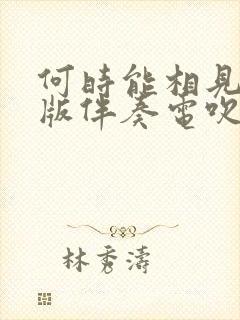 何時能相見
版伴奏電吹
林秀濤